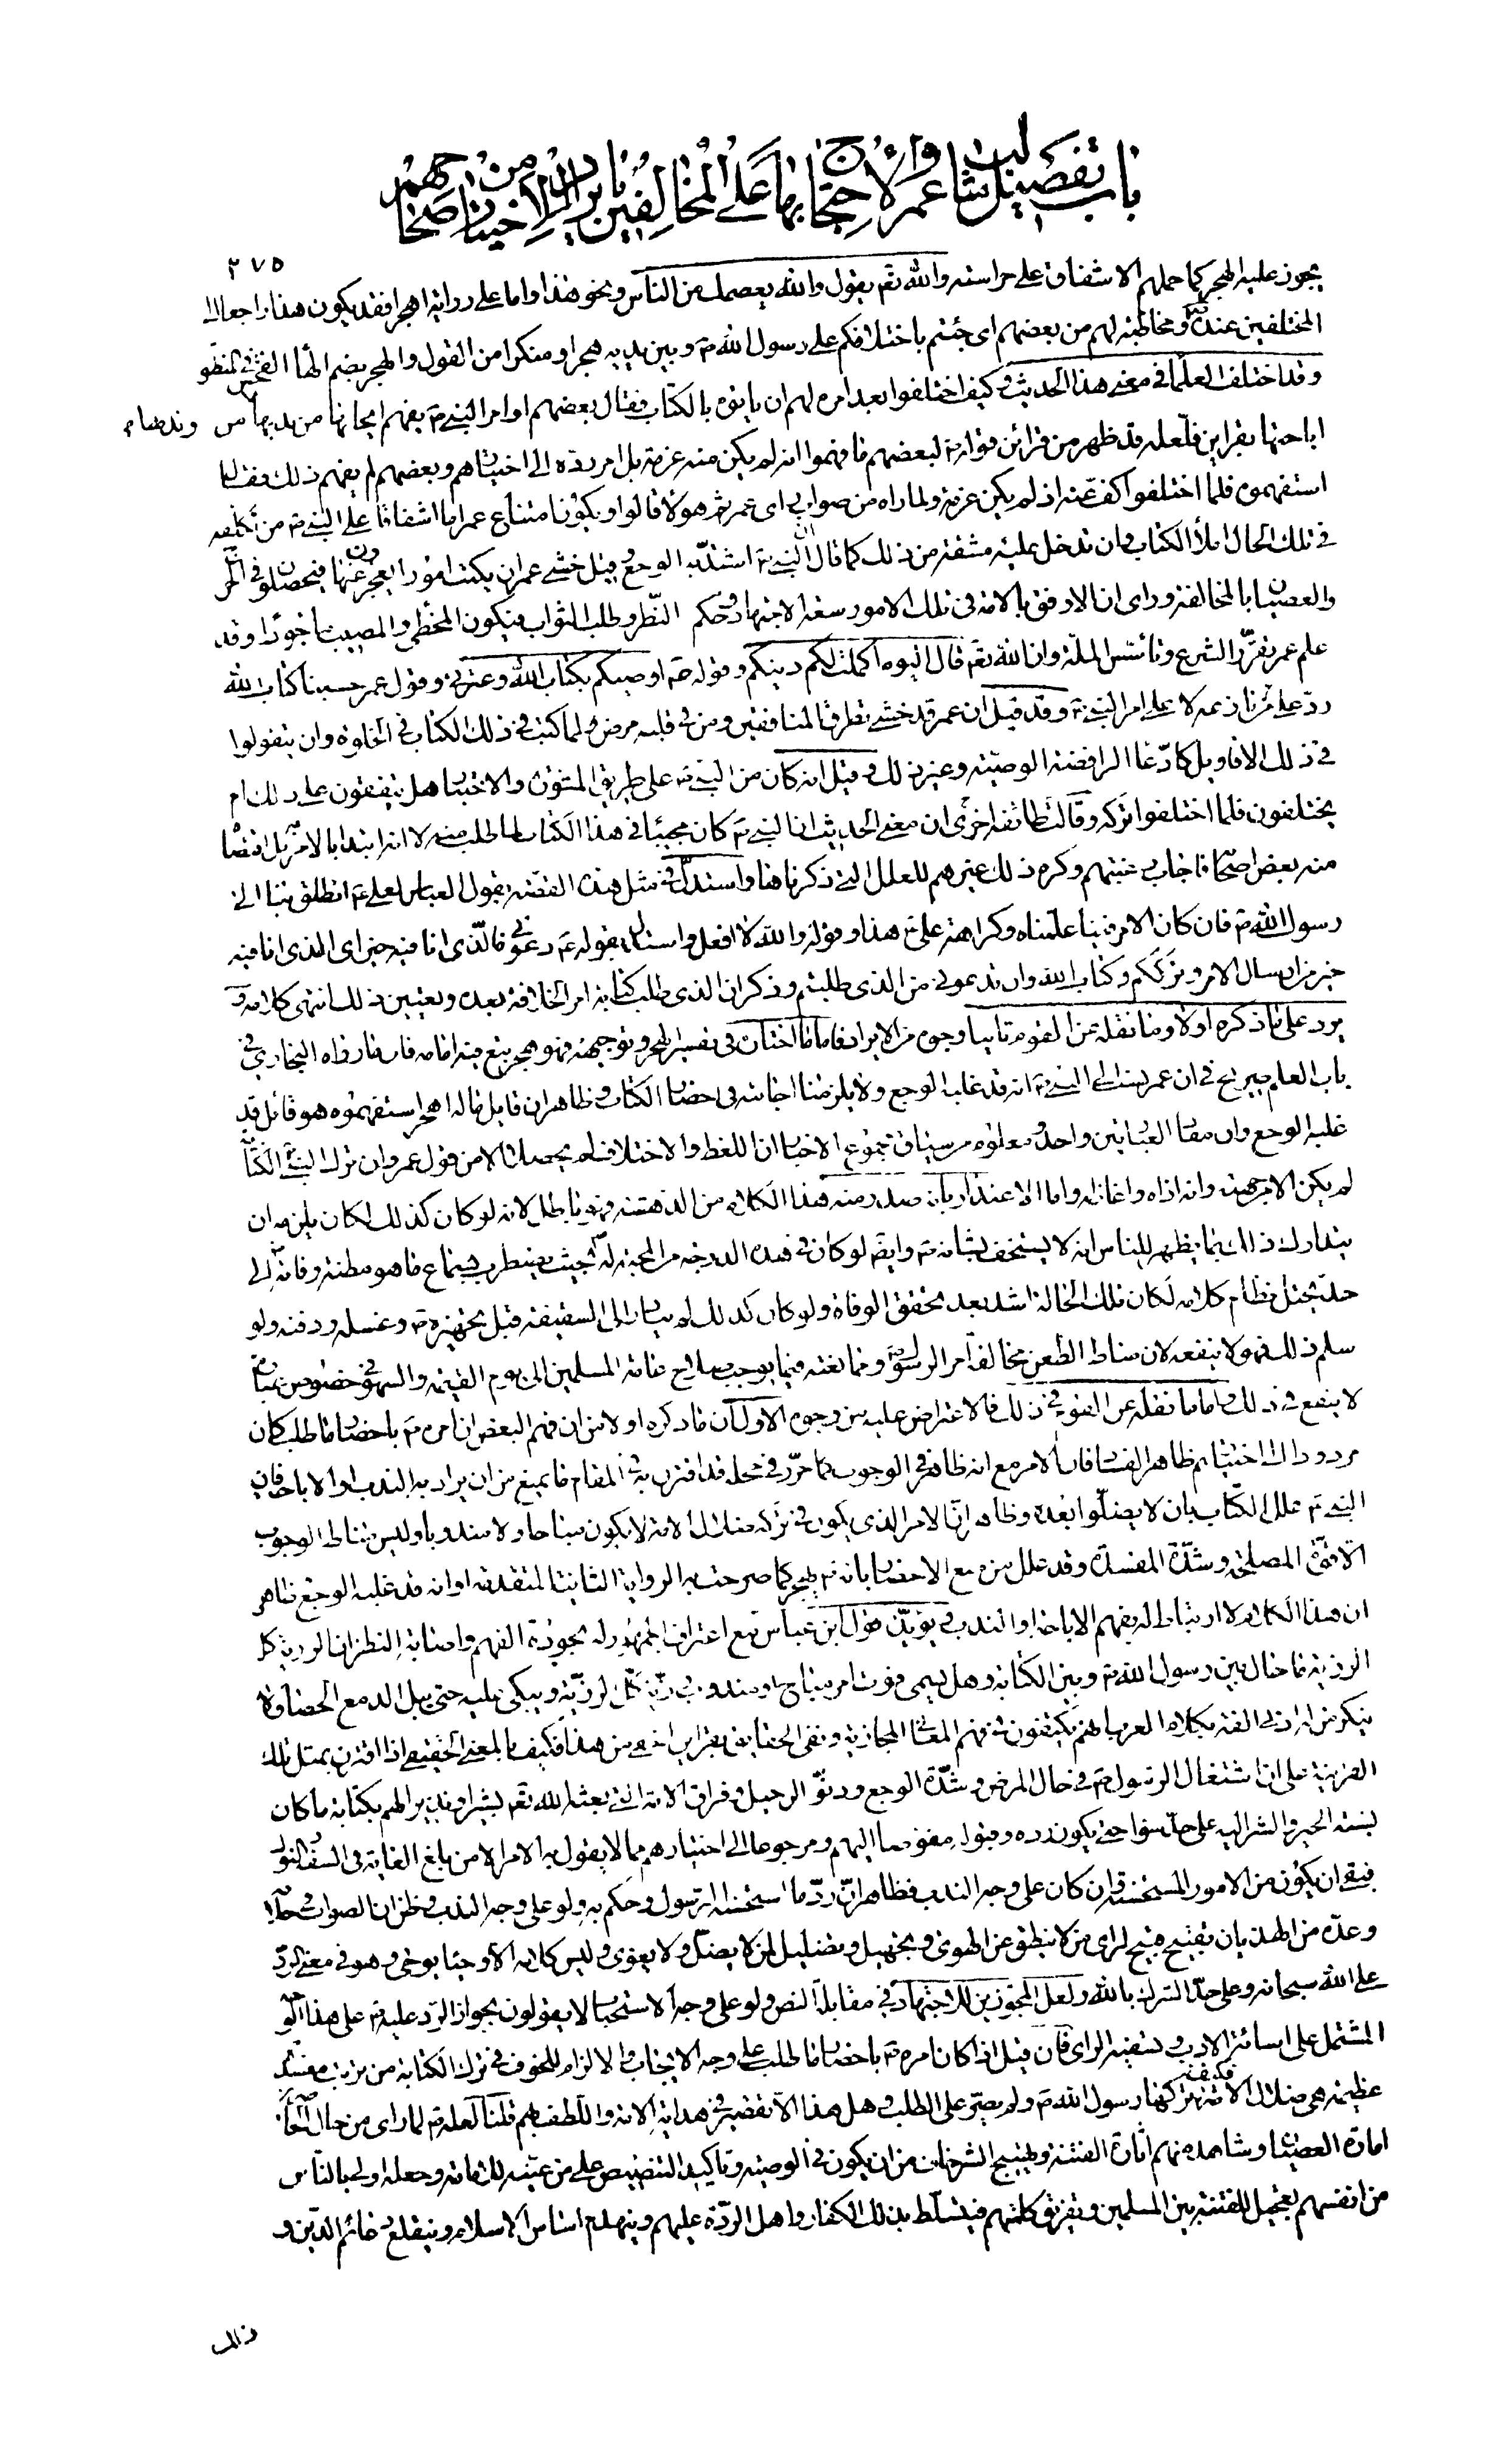 باب تفصيل مثالب عمر والاحتجاج بها على المخالفين بايراد الاخبار من صحاحهم
٢٧٥
يجوز عليه الهجر كما حملهم الاشفاق على حراسته والله تعم يقول والله يعصمك من الناس ونحو هذا واما على رواية اهجرا فقد يكون هذا راجعا الى
المختلفين عنده ص ومخاطبة لهم من بعضهم اى جئتم باختلافكم على رسول الله ص وبين يديه هجرا ومنكرا من القول والهجر بضم الهاء الفحش فى المنطق
وقد اختلف العلما فى معنى هذا الحديث وكيف اختلفوا بعد امره لهم ان ياتوه بالكتاب فقال بعضهم اوامر النبى ص يفهم ايجابها من ندبها من
اباحتها بقراين فلعله قد ظهر من قرائن قوله ص لبعضهم ما فهموا انه لم يكن منه عزمة بل امر رده الى اختيارهم وبعضهم لم يفهم ذلك فقال
استفهموه فلما اختلفوا كف عنه اذ لم يكن عزمة ولما راه من صواب راى عمر ثم هؤلا قالوا ويكون امتناع عمر اما اشفاقا على النبى ص من تكليفه
فى تلك الحال املأ الكتاب وان تدخل عليه مشقة من ذلك كما قال ان النبى ص اشتد به الوجع وقيل خشى عمر ان يكتب امورا يعجزون عنها فيحصلون فى الحرج
والعصيان بالمخالفة وراى ان الاوفق بالامة فى تلك الامور سعة الاجتهاد وحكم النظر وطلب الثواب فيكون المخطى والمصيب ماجورا وقد
علم عمر تقرر الشرع وتأسس الملة وان الله تعم قال اليوم اكملت لكم دينكم وقوله ص اوصيكم بكتاب الله وعترتى وقول عمر حسبنا كتاب الله
رد على من نازعه لا على امر النبى ص وقد قيل ان عمر قد خشى تطرق المنافقين ومن فى قلبه مرض لما كتب فى ذلك الكتاب فى الخلوة وان يتقولوا
فى ذلك الاقاويل كادعا الرافضة الوصية وغير ذلك وقيل انه كان من النبى ص على طريق المشورة والاختبار هل يتفقون على ذلك ام
يختلفون فلما اختلفوا تركه وقالت طائفة اخرى ان معنى الحديث ان النبى ص كان مجيبا فى هذا الكتاب لما طلب منه لا انه ابتدا بالامر به بل اقتضا
منه بعض اصحابه فاجاب رغبتهم وكره ذلك غيرهم للعلل التى ذكرناها واستدل فى مثل هذه القصة بقول العباس لعلى ع انطلق بنا الى
رسول الله ص فان كان الامر فينا علمناه وكراهة على ع هذا وقوله والله لا افعل واستدل بقوله ع دعونى فالذى انا فيه خير اى الذى انا فيه
خير من ارسال الامر وترككم وكتاب الله وان تدعونى من الذى طلبتم وذكر ان الذى طلب كتابة امر الخلافة بعده وتعيين ذلك انتهى كلامه و
يرد على ما ذكره اولا وما نقله عن القوم ثانيا وجوه من الايراد فاما ما اختاره فى تفسير الهجر وتوجيهه فهو هجر يتبع فيه امامه فان ما رواه البخارى فى
باب العلم صريح فى ان عمر نسب الى النبى ص انه قد غلبه الوجع ولا يلزمنا اجابته فى احضار الكتاب وظاهر ان قايل ما له اهجر استفهموه هو قائل قد
غلبه الوجع وان مفاد العبارتين واحد ومعلوم من سياق مجموع الاخبار ان اللغط والاختلاف لم يحصلا الا من قول عمر وان ترك النبى الكتابة
لم يكن الا من جهته وانه اذاه واغاظه واما الاعتذار بانه صدر منه هذا الكلام من الدهشة فهو باطل لانه لو كان كذلك لكان يلزمه ان
يتدارك ذلك بما يظهر للناس انه لا يستخف بشانه ص وايضا لو كان فى هذه الدرجة من المحبة له ص بحيث يضطرب بسماع ما هو مظنة وفاته الى
حد يختل نظام كلامه لكان تلك الحالة اشد بعد تحقق الوفاة ولو كان كذلك لم يبادر الى السقيفة قبل تجهيزه ص وغسله ودفنه ولو
سلم ذلك فهو لا ينفعه لان مناط الطعن مخالفة امر الرسول ص وممانعته فيما يوجب صلاح عامة المسلمين الى يوم القيمة والسهو فى خصوص عبارة
لا ينفع فى ذلك واما ما نقله عن القوم فى ذلك فالاعتراض عليه من وجوه الاول ان ما ذكره اولا من ان فهم البعض ان امره ص باحضار ما طلب كان
مردودا الى اختيارهم ظاهر الفساد فان الامر مع انه ظاهر فى الوجوب كما حرر فى محله قد اقترن به فى المقام ما يمنع من ان يراد به الندب او الاباحة فان
النبى ص علل الكتاب بان لا يضلوا بعده وظاهر ان الامر الذى يكون فى تركه ضلال الامة لا يكون مباحا ولا مندوبا وليس مناط الوجوب
الا قوة المصلحة وشدة المفسدة وقد علل من منع الاحضار بانه ص يهجر كما صرحت به الرواية الثانية المتقدمة او انه قد غلبه الوجع وظاهر
ان هذا الكلام لا ارتباط له بفهم الاباحة او الندب ويؤيده قول ابن عباس مع اعتراف الجمهور له بجودة الفهم واصابة النظر ان الرزية كل
الرزية ما حال بين رسول الله ص وبين الكتابة وهل يسمى فوت امر مباح او مندوب رزية كل الرزية ويبكى عليه حتى يبل الدمع الحصا ولا
ينكر من له ادنى الفة بكلام العرب انهم يكتفون فى فهم المعانى المجازية ونفى الحقايق بقراين اخفى من هذا فكيف بالمعنى الحقيقى اذا اقترن بمثل تلك
القرينة على ان اشتغال الرسول ص فى حال المرض وشدة الوجع ودنو الرحيل وفراق الامة التى بعثه الله تعم بشيرا ونذيرا لهم بكتابة ما كان
نسبة الخير والشر اليه على حد سواء حتى يكون رده وقبوله مفوضا اليهم ومرجوعا الى اختيارهم مما لا يقول به الا من بلغ الغاية فى السفه والنوك
فبقى ان يكون من الامور المستحسنة وان كان على وجه الندب فظاهر ان رد ما استحسنه الرسول وحكم به ولو على وجه الندب وظن ان الصواب فى خلافه
وعده من الهذيان تقبيح قبيح لراى من لا ينطق عن الهوى وتجهيل وتضليل لمن لا يضل ولا يغوى وليس كلامه الا وحيا يوحى وهو فى معنى الرد
على الله سبحانه وعلى حد الشرك بالله ولعل المجوزين للاجتهاد فى مقابلة النص ولو على وجه الاستحباب لا يقولون بجواز الرد عليه ص على هذا الوجه
المشتمل على اسائة الادب وتسفيه الراى فان قيل اذا كان امره ص باحضار ما طلب على وجه الايجاب والالزام للخوف فى ترك الكتابة من ترتب مفسدة
عظيمة هى ضلال الامة فكيف تركها رسول الله ص ولم يصر على الطلب وهل هذا الا تقصير فى هداية الامة واللطف بهم قلنا لعله ص لما راى من حال
امارة العصيان وشاهد منهم اثارة الفتنة وتهييج الشر خاف من ان يكون فى الوصية وتاكيد التنصيص على من عينه للامامة وجعله اولى بالناس
من انفسهم تعجيل للفتنة بين المسلمين وتفريق كلمتهم فيتسلط بذلك الكفار واهل الردة عليهم وينهدم اساس الاسلام وينقلع دعائم الدين و
ذلك